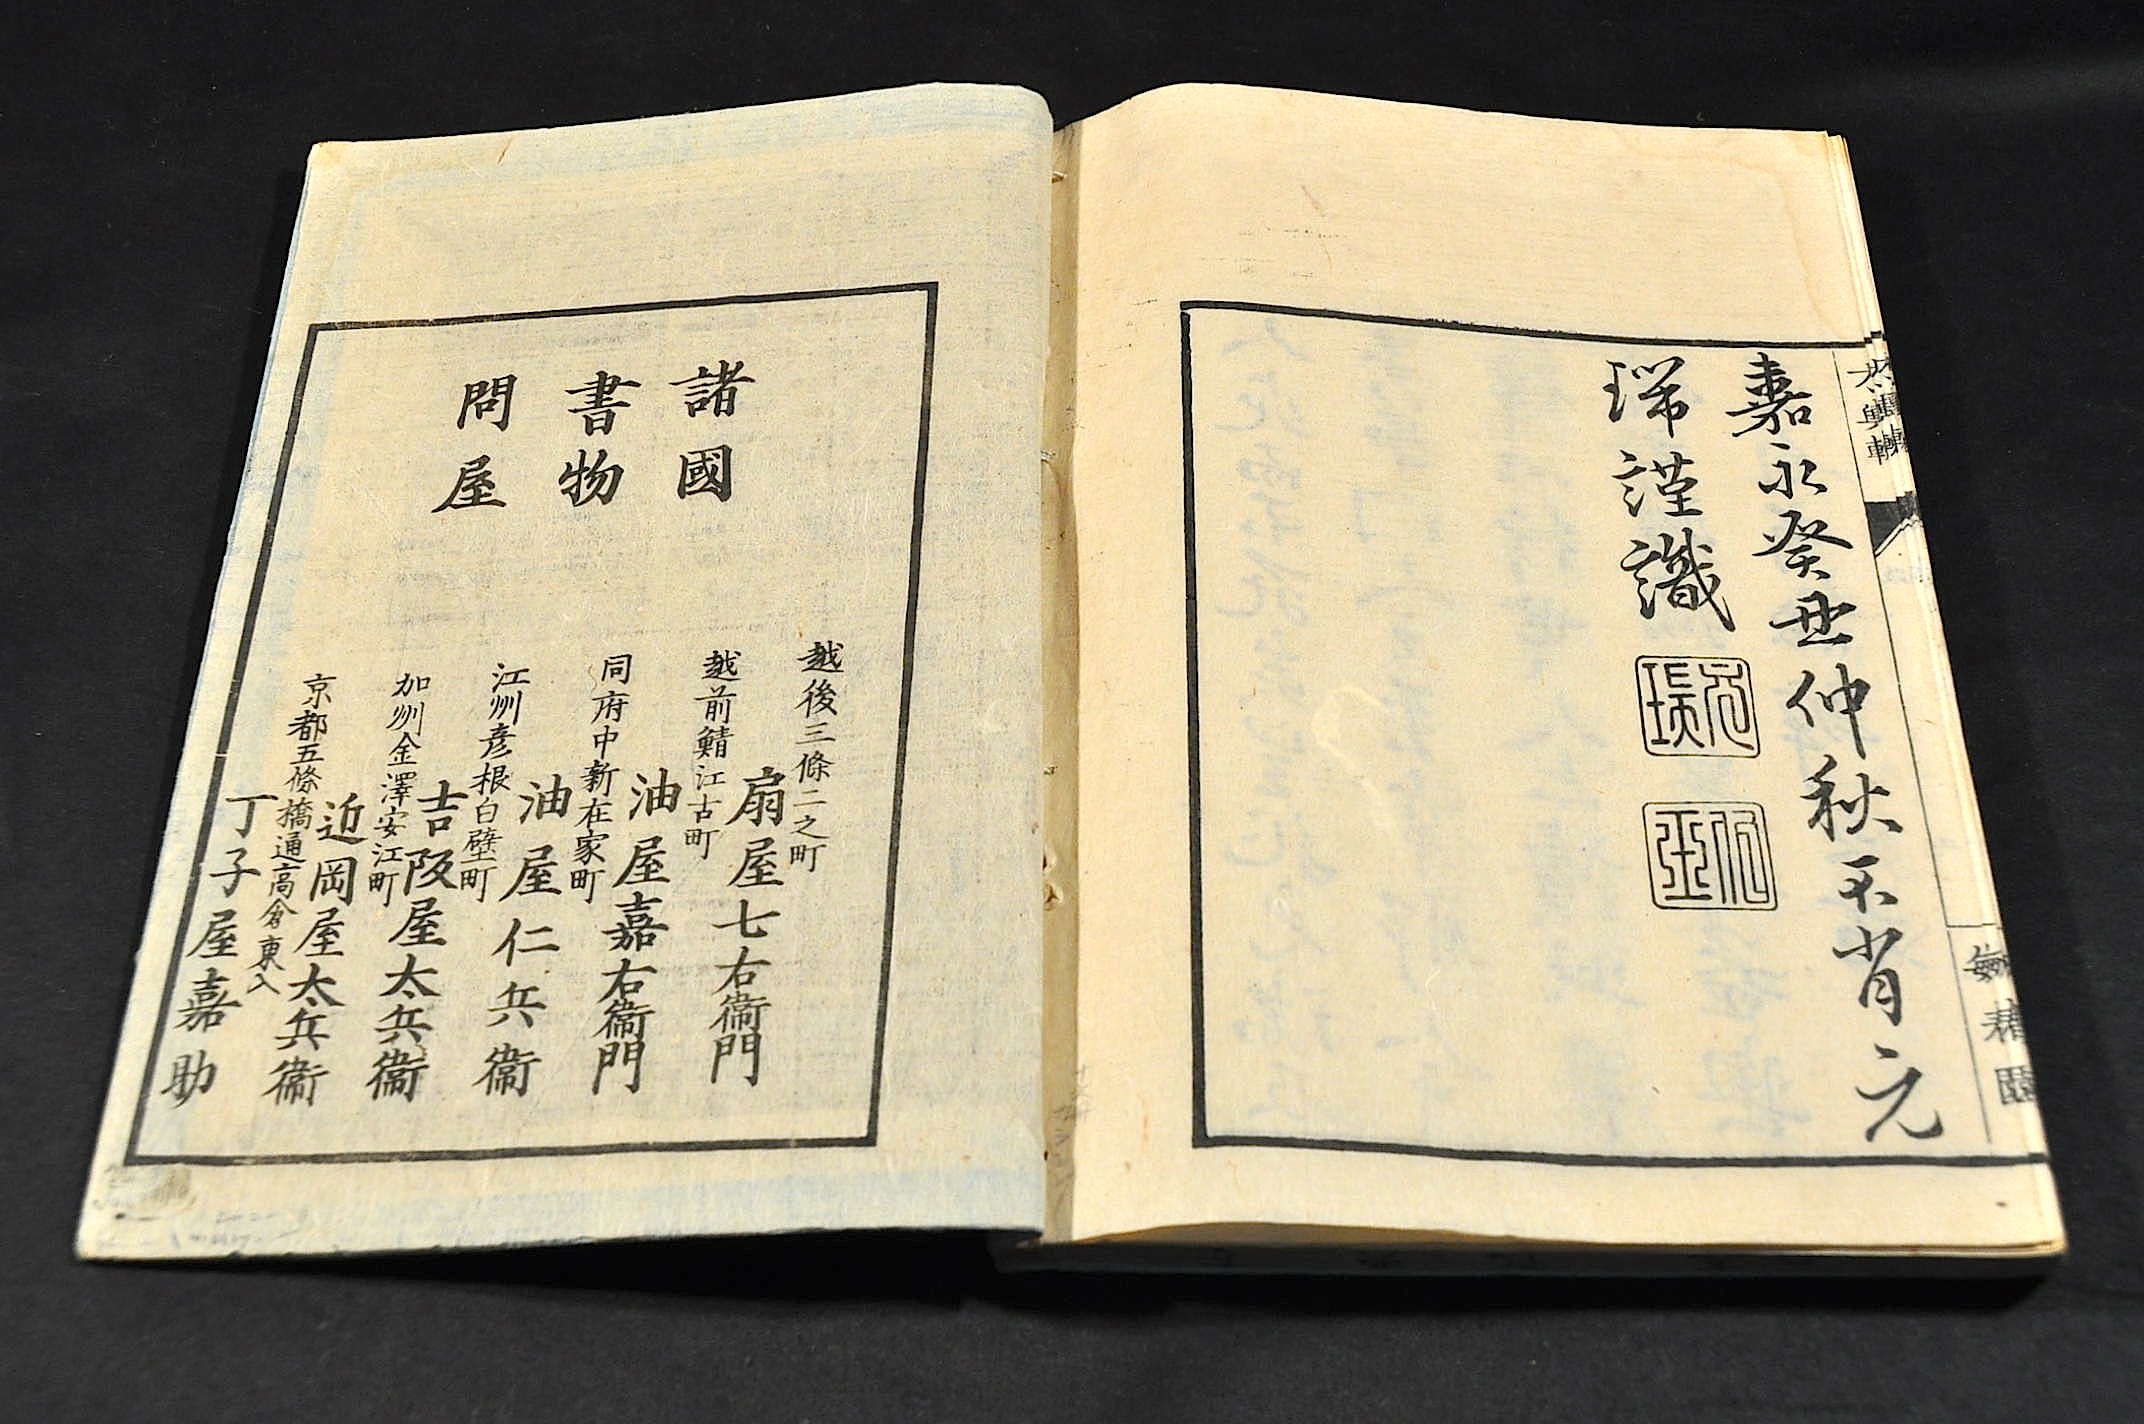 嘉永癸丑仲秋不肖元
瑞謹識
元瑞
諸國
書物
問屋
越後三條二之町
扇屋七右衞門
越前鯖江古町
油屋嘉右衞門
同府中新在家町
油屋仁兵衞
江州彦根白壁町
吉阪屋太兵衞
加州金澤安江町
近岡屋太兵衞
京都五條橋通高倉東入
丁子屋嘉助